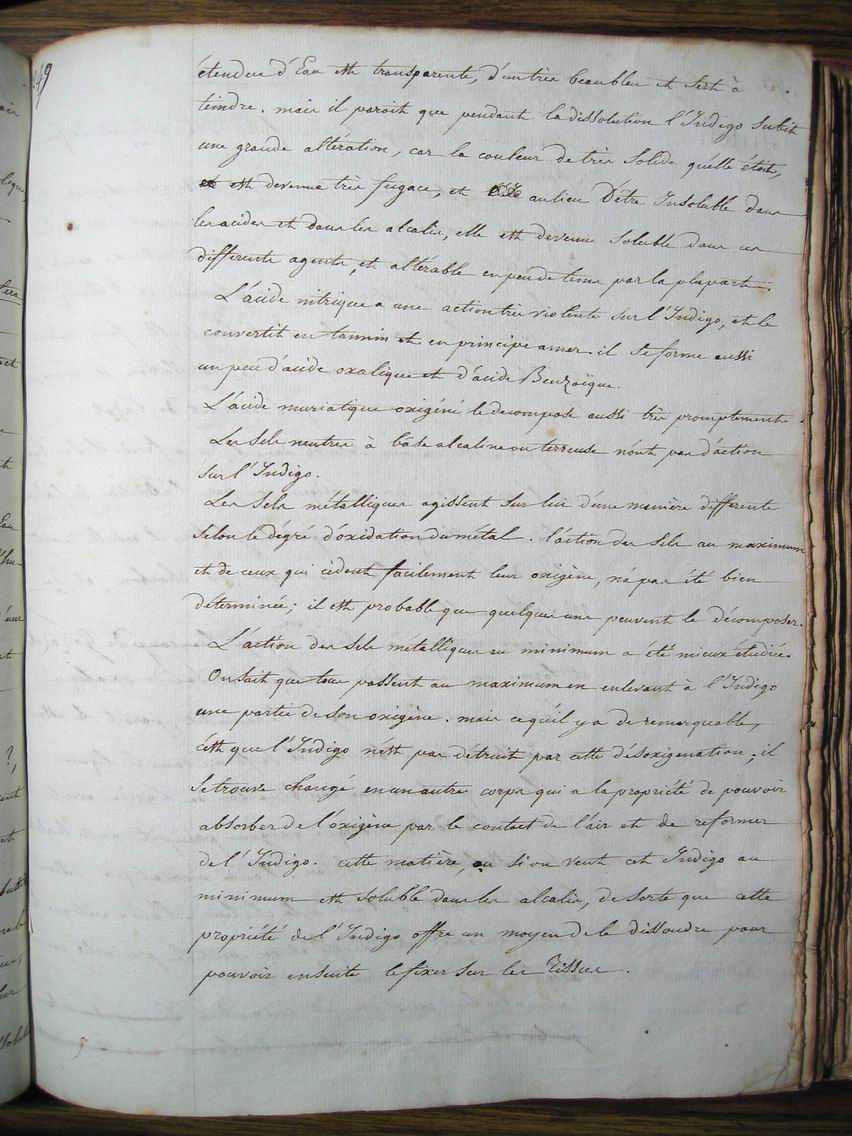 249
étendue d'Eau est transparente, d'un très beau bleu et sert à
teindre. mais il parait que pendant la dissolution l'Indigo subit
une grande altération, car la couleur de très solide quelle étoit,
est devenue très fugace, et au lieu D'être Insoluble dans
les acides et dans les alcalis, elle est devenue soluble dans ces
differents agents, et altérable en peu de tems par la plupart.
L'acide nitrique a une action très violente sur l'Indigo, et le
convertit en tannin et en principe amer il se forme aussi
un peu d'acide oxalique et d'acide Benzoïque.
L'acide muriatique oxigéné le decompose aussi très promptement.
Les sels neutres à base alcaline ou terreuse n'ont pas d'action
sur l'Indigo.
Les sels métalliques agissent sur lui d'une manière differente
selon le dégré d'oxidation du métal. l'action des sels au maximum
et de ceux qui cèdent facilement leur oxigène, n'a pas été bien
déterminée; il est probable que quelques uns peuvent le décomposer.
L'action des sels métalliques au minimum a été mieux étudiée.
On sait que tous passent au maximum en enlevant à l'Indigo
une partie de son oxigène. mais ce qu'il y a de remarquable,
c'est que l'Indigo n'est pas detruit par cette désoxigenation; il
se trouve changé en un autre corps qui a la propriété de pouvoir
absorber de l'oxigène par le contact de l'air et de reformer
de l'Indigo. cette matière, ou si on veut cet Indigo au
minimum est soluble dans les alcalis, de sorte que cette
propriété de l'Indigo offre un moyen de le dissoudre pour
pouvoir ensuite le fixer sur les Tissus.